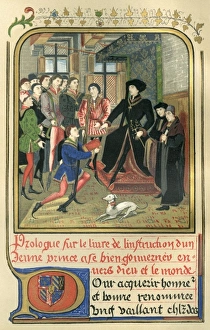 Prologue sur le livre de linstruction dun
Jeune prince a se bien gouverner en
uers dieu et le monde
Our acquerir honne
et bonne renommee
ung vaillant